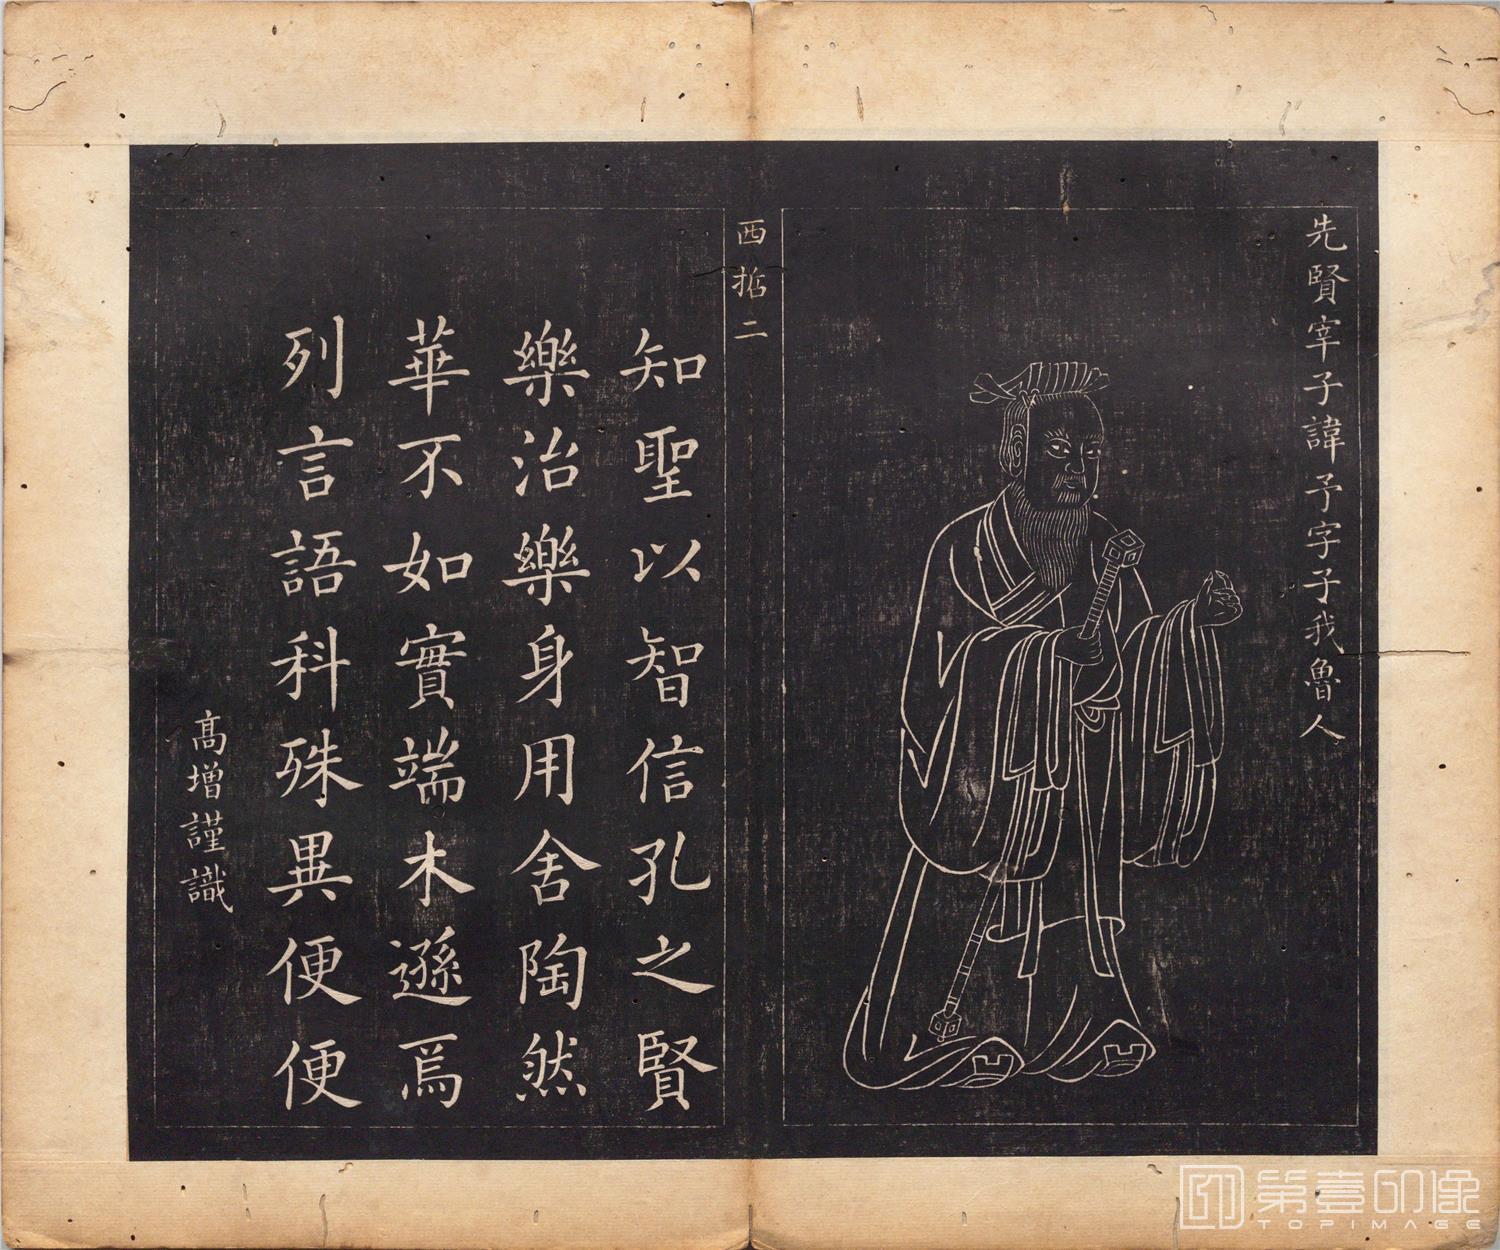 先賢宰子諱予字子我魯人
西哲二
知聖以智信孔之賢
樂治樂身用舍陶然
華不如實端木遜焉
列言語科殊異便便
高增謹識
第壹印像
TOPIMAGE